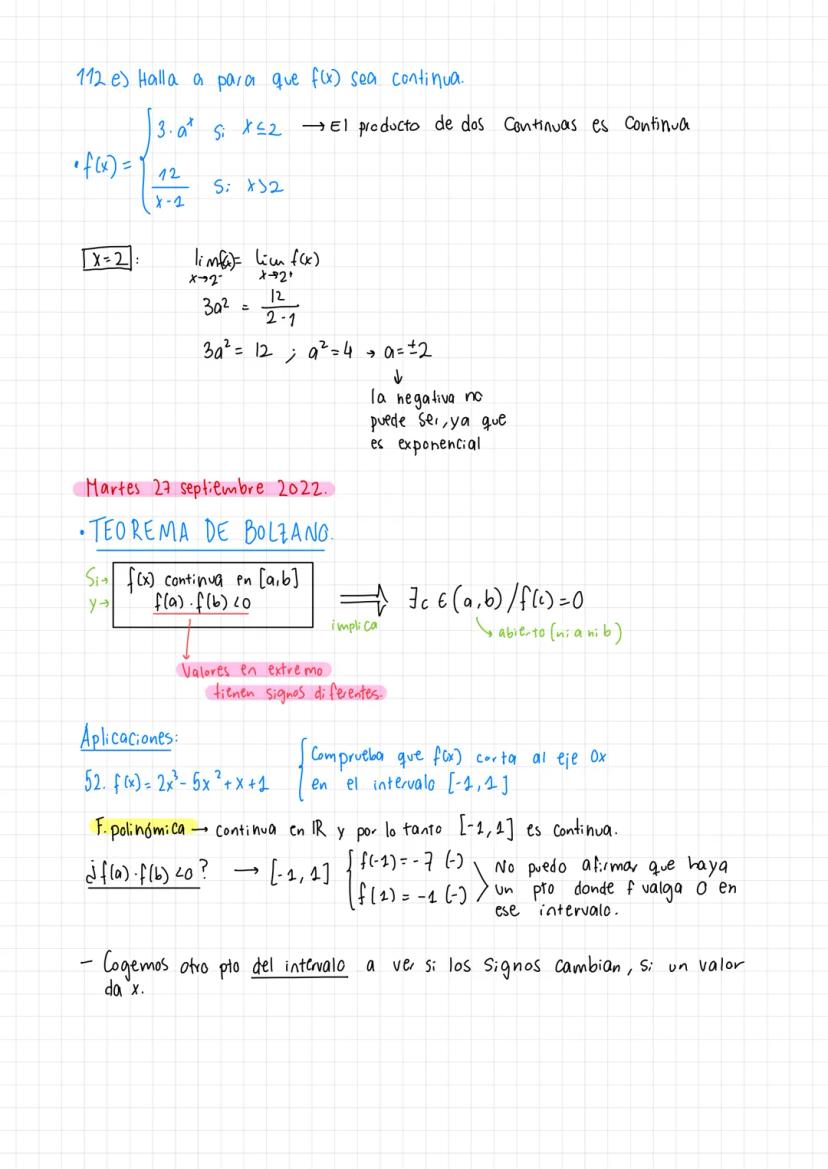 112 e) Halla a para que f(x) sea continua.
• f(x) = { 3·aˣ si x ≤ 2 → El producto de dos continuas es continua
12/(x-1) si x > 2
x = 2 : lim f(x) = lim f(x)
x→2⁻ x→2⁺
3a² = 12/(2-1)
3a² = 12 ; a² = 4 → a = ±2
↓
la negativa no
puede ser, ya que
es exponencial
Martes 27 septiembre 2022.
• TEOREMA DE BOLZANO.
Si → f(x) continua en [a,b]
y → f(a)·f(b) < 0 ⟹ ∃c ∈ (a,b) / f(c) = 0
implica
abierto (ni a ni b)
Valores en extremo
tienen signos diferentes.
Aplicaciones:
52. f(x) = 2x³ - 5x² + x + 1 { Comprueba que f(x) corta al eje Ox
en el intervalo [-1,1]
F. polinómica → continua en IR y por lo tanto [-1,1] es continua.
¿f(a)·f(b) < 0? → [-1,1] { f(-1) = -7 (-)
f(1) = -1 (-)
No puedo afirmar que haya
un pto donde f valga 0 en
ese intervalo.
- Cogemos otro pto del intervalo a ver si los signos cambian, si un valor
da x.